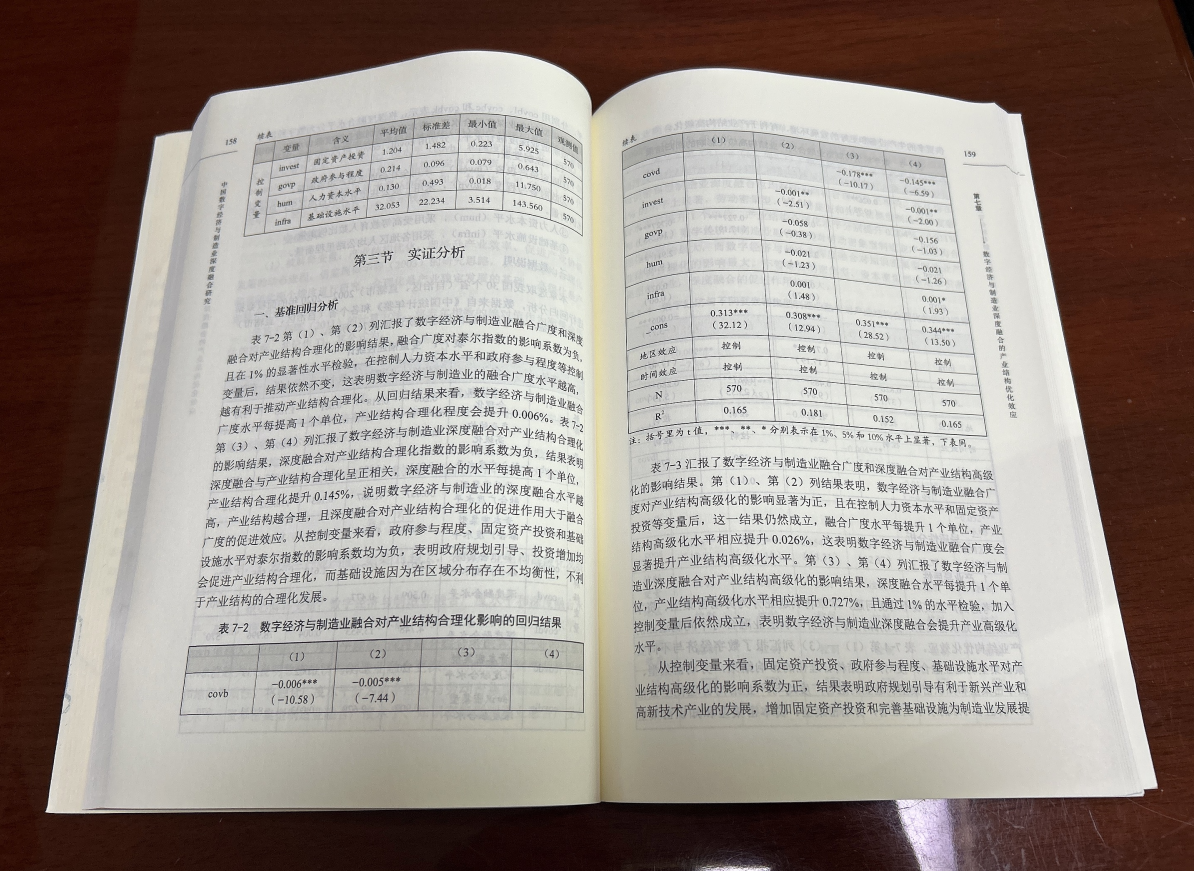 158
中国数字经济与制造业深度融合研究
续表
变量 含义 平均值 标准差 最小值 最大值 观测值
控制变量 invest 固定资产投资 1.204 1.482 0.223 5.925 570
govp 政府参与程度 0.214 0.096 0.079 0.643 570
hum 人力资本水平 0.130 0.493 0.018 11.750 570
infra 基础设施水平 32.053 22.234 3.514 143.560 570
第三节 实证分析
一、基准回归分析
表 7-2 第（1）、第（2）列汇报了数字经济与制造业融合广度和深度
融合对产业结构合理化的影响结果，融合广度对泰尔指数的影响系数为负，
且在 1% 的显著性水平检验，在控制人力资本水平和政府参与程度等控制
变量后，结果依然不变，这表明数字经济与制造业的融合广度水平越高，
越有利于推动产业结构合理化。从回归结果来看，数字经济与制造业融合
广度水平每提高 1 个单位，产业结构合理化程度会提升 0.006%。表 7-2
第（3）、第（4）列汇报了数字经济与制造业深度融合对产业结构合理化
的影响结果，深度融合对产业结构合理化指数的影响系数为负，结果表明
深度融合与产业结构合理化呈正相关，深度融合的水平每提高 1 个单位，
产业结构合理化提升 0.145%，说明数字经济与制造业的深度融合水平越
高，产业结构越合理，且深度融合对产业结构合理化的促进作用大于融合
广度的促进效应。从控制变量来看，政府参与程度、固定资产投资和基础
设施水平对泰尔指数的影响系数均为负，表明政府规划引导、投资增加均
会促进产业结构合理化，而基础设施因为在区域分布存在不均衡性，不利
于产业结构的合理化发展。
表 7-2 数字经济与制造业融合对产业结构合理化影响的回归结果
（1） （2） （3） （4）
covb −0.006*** −0.005***
（−10.58） （−7.44）
159
第七章 数字经济与制造业深度融合的产业结构优化效应
续表
（1） （2） （3） （4）
covd −0.178*** −0.145***
（−10.17） （−6.59）
invest −0.001** −0.001**
（−2.51） （−2.00）
govp −0.058 −0.156
（−0.38） （−1.03）
hum −0.021 −0.021
（−1.23） （−1.26）
infra 0.001 0.001*
（1.48） （1.93）
_cons 0.313*** 0.308*** 0.351*** 0.344***
（32.12） （12.94） （28.52） （13.50）
地区效应 控制 控制 控制 控制
时间效应 控制 控制 控制 控制
N 570 570 570 570
R² 0.165 0.181 0.152 0.165
注：括号里为 t 值，***、**、* 分别表示在 1%、5% 和 10% 水平上显著，下表同。
表 7-3 汇报了数字经济与制造业融合广度和深度融合对产业结构高级
化的影响结果。第（1）、第（2）列结果表明，数字经济与制造业融合广
度对产业结构高级化的影响显著为正，且在控制人力资本水平和固定资产
投资等变量后，这一结果仍然成立，融合广度水平每提升 1 个单位，产业
结构高级化水平相应提升 0.026%，这表明数字经济与制造业融合广度会
显著提升产业结构高级化水平。第（3）、第（4）列汇报了数字经济与制
造业深度融合对产业结构高级化的影响结果，深度融合水平每提升 1 个单
位，产业结构高级化水平相应提升 0.727%，且通过 1% 的水平检验，加入
控制变量后依然成立，表明数字经济与制造业深度融合会提升产业高级化
水平。
从控制变量来看，固定资产投资、政府参与程度、基础设施水平对产
业结构高级化的影响系数为正，结果表明政府规划引导有利于新兴产业和
高新技术产业的发展，增加固定资产投资和完善基础设施为制造业发展提